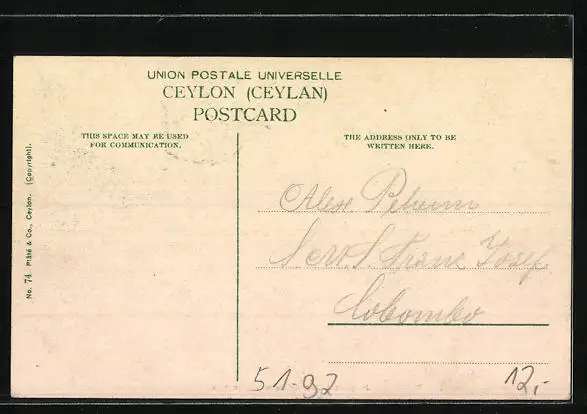 UNION POSTALE UNIVERSELLE
CEYLON (CEYLAN)
POSTCARD
THIS SPACE MAY BE USED
FOR COMMUNICATION.
THE ADDRESS ONLY TO BE
WRITTEN HERE.
No. 74. Plâté & Co., Ceylon. (Copyright).
Josef
Colombo
51-92
12,-